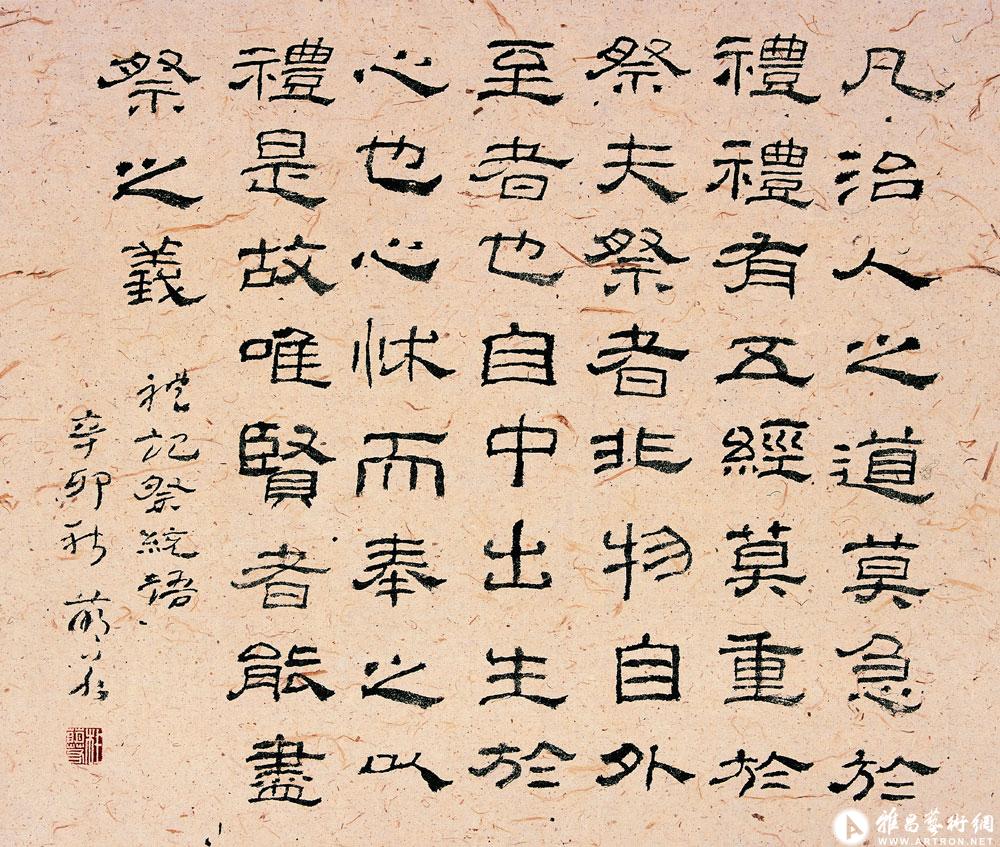 凡治人之道莫急於
禮禮有五經莫重於
祭夫祭者非物自外
至者也自中出生於
心也心怵而奉之以
禮是故唯賢者能盡
祭之義
禮記祭統語
辛卯秋
雅昌藝術網
WWW.ARTRON.NET